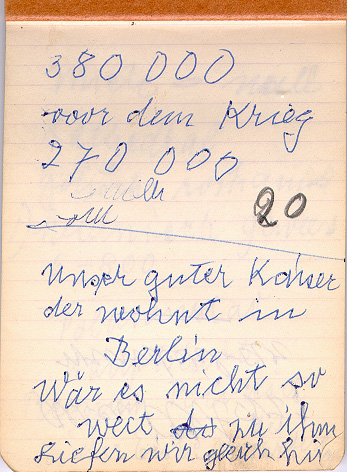 380 000
voor dem Krieg
270 000
20
unser guter Kaiser
der wohnt in
Berlin
Wär es nicht so
weit zu ihm
Liefen wir gleich hin